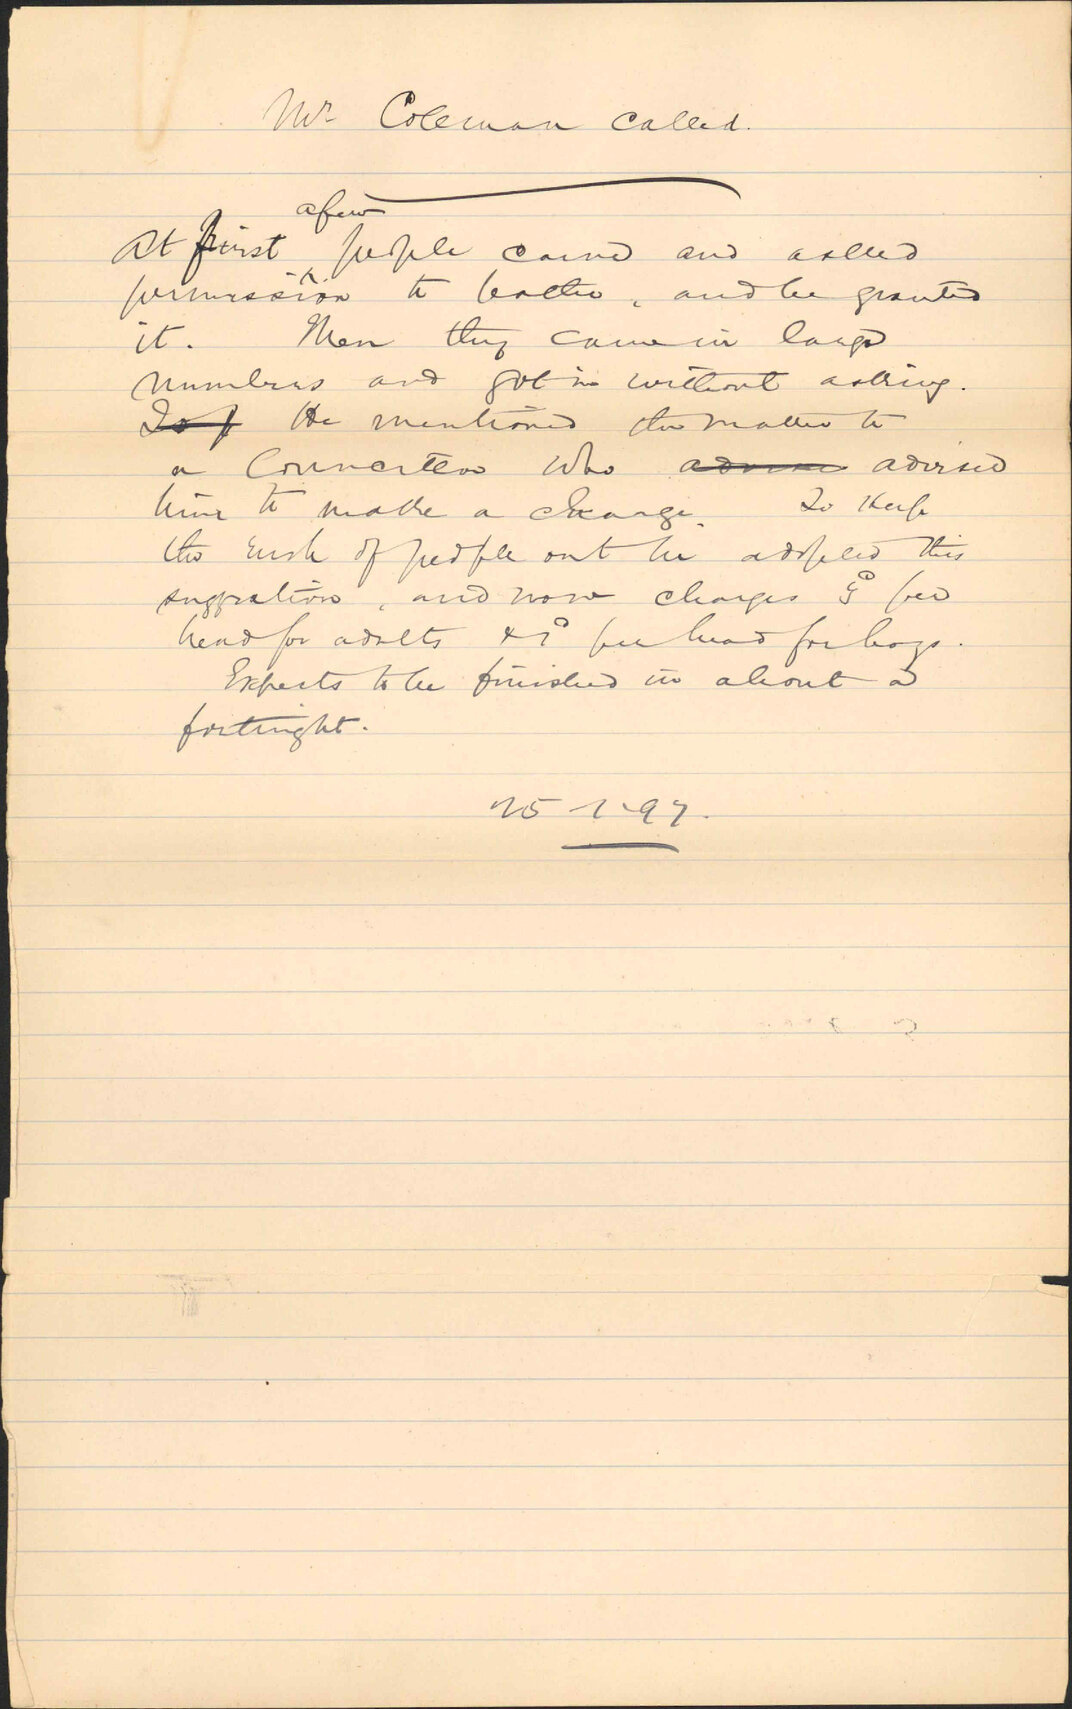 Mr Coleman called.
a few
At first people came and asked
permission to bathe, and he granted
it. Then they came in large
numbers and got in without asking.
To p He mentioned the matter to
a Councillor who advise advised
him to make a charge. To keep
the rush of people out he adopted this
suggestion, and now charges 3d per
head for adults & 1d per head for boys.
Expects to be finished in about a
fortnight.
25-1-97.